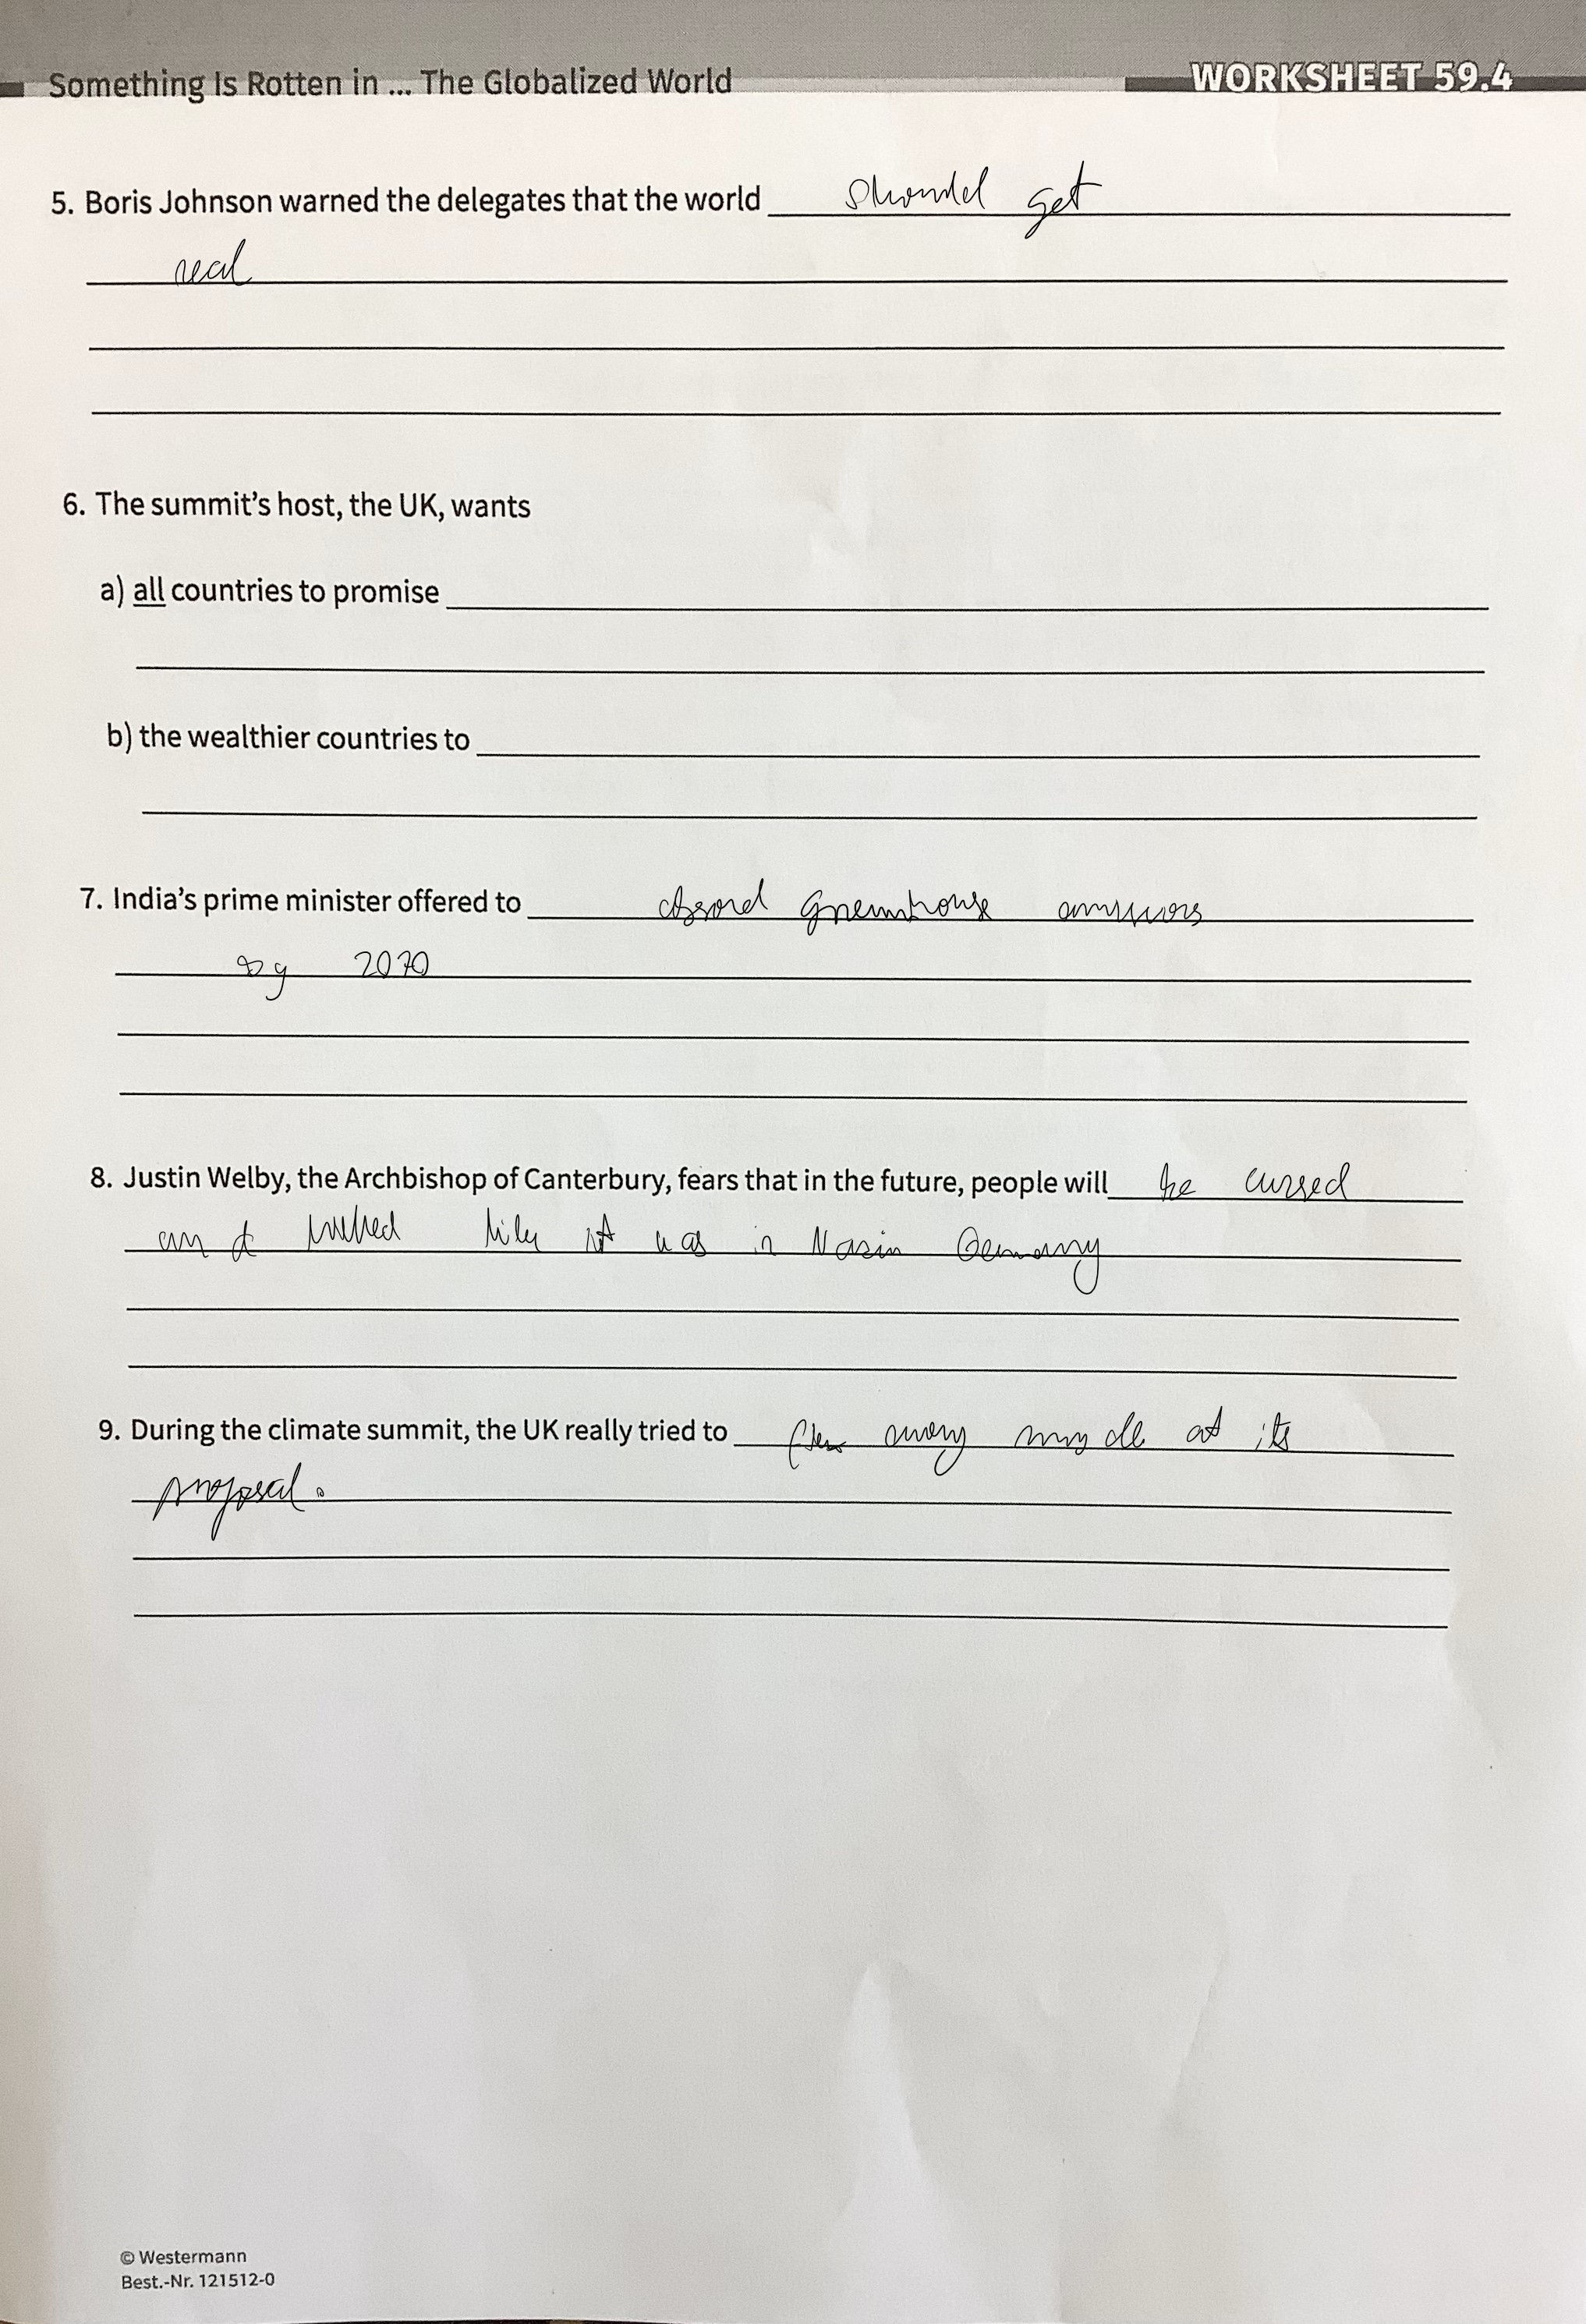 Something Is Rotten in ... The Globalized World
WORKSHEET 59.4
5. Boris Johnson warned the delegates that the world should get
real
6. The summit's host, the UK, wants
a) all countries to promise
b) the wealthier countries to
7. India's prime minister offered to absord greenhouse
by 2070
8. Justin Welby, the Archbishop of Canterbury, fears that in the future, people will be cursed
and it was in Nazin Germany
9. During the climate summit, the UK really tried to every at its
proposal.
© Westermann
Best.-Nr. 121512-0